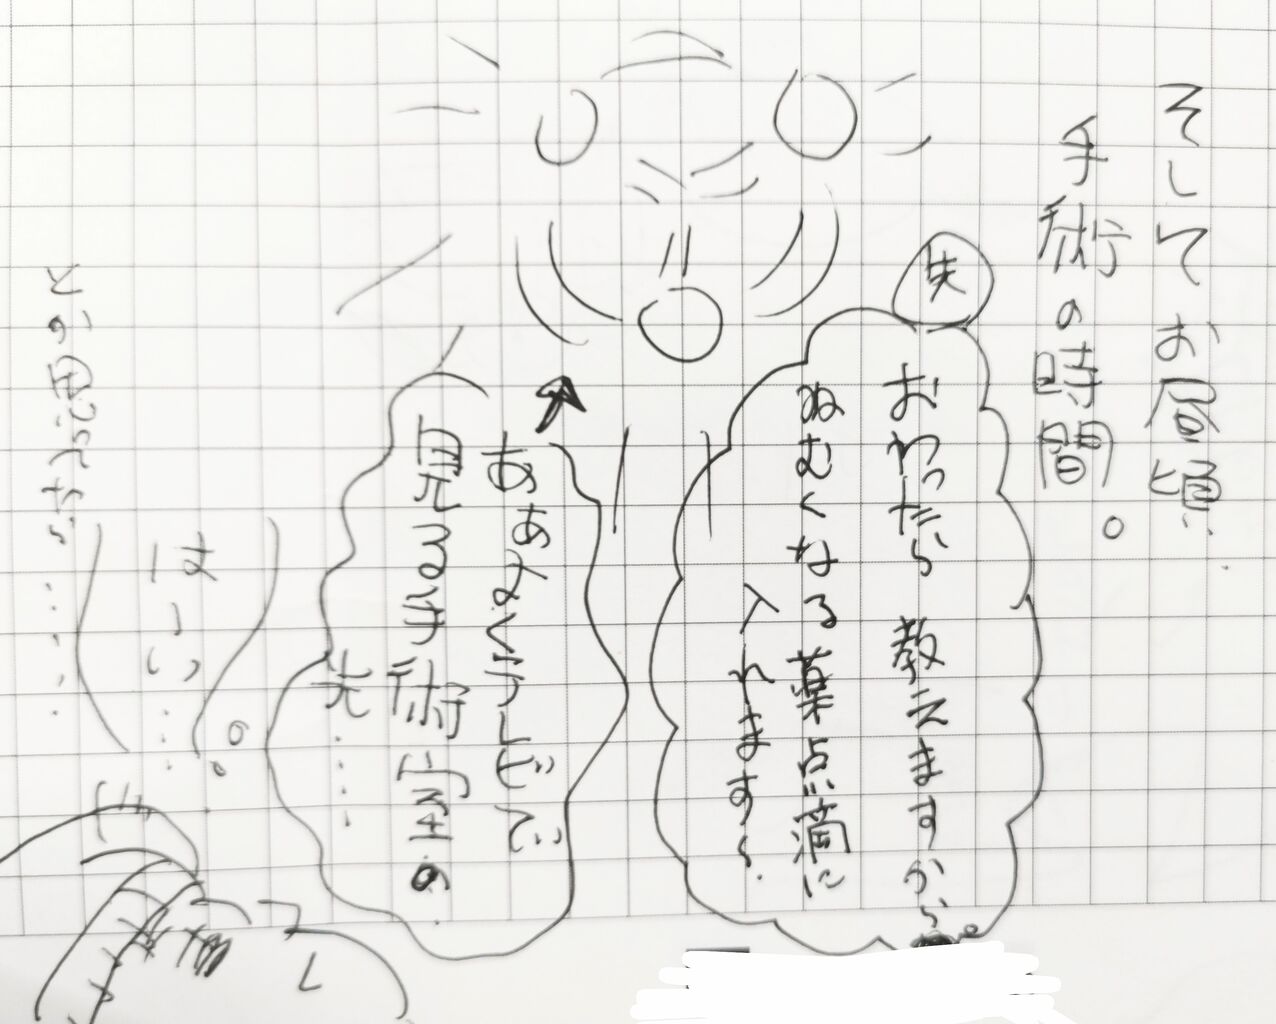 そしてお昼頃.
手術の時間。
失
おわったら 教えますから
ねむくなる薬点滴に
入れます〜.
ああんこれてしどで
見える手術室の
光・・・・
はーい…。
とか思ってたら……